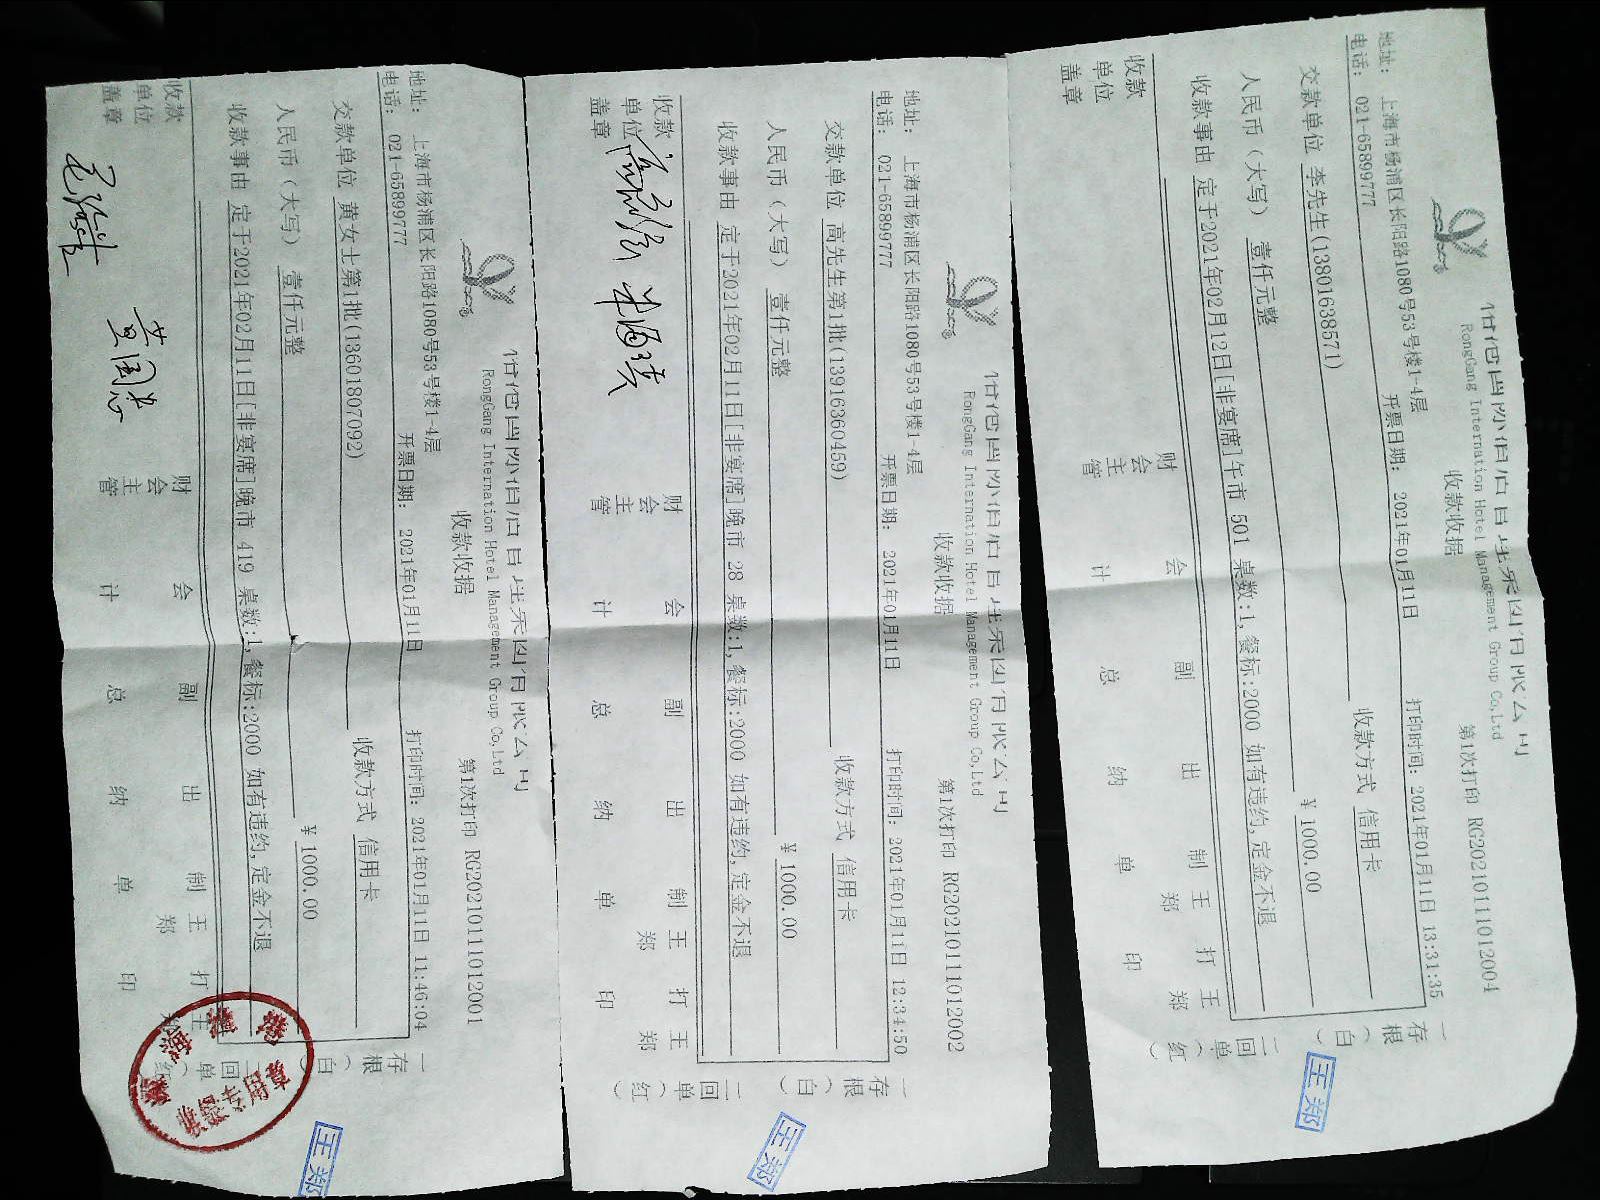 RongGang International Hotel Management Group Co,Ltd
收款收据
第1次打印 RG20210111012004
地址: 上海市杨浦区长阳路1080号53号楼1-4层
电话: 021-65899777
开票日期: 2021年01月11日
打印时间: 2021年01月11日 13:31:35
交款单位 李先生(13801638571)
收款方式 信用卡
人民币(大写) 壹仟元整
¥ 1000.00
收款事由 定于2021年02月12日[非宴席]午市 501 桌数:1,餐标:2000 如有违约,定金不退
收款单位盖章
财会主管
会计
副总
出纳
制单 王郑
打印 王郑
一存根(白) 二回单(红)
王郑
RongGang International Hotel Management Group Co,Ltd
收款收据
第1次打印 RG20210111012002
地址: 上海市杨浦区长阳路1080号53号楼1-4层
电话: 021-65899777
开票日期: 2021年01月11日
打印时间: 2021年01月11日 12:34:50
交款单位 高先生第1批(13916360459)
收款方式 信用卡
人民币(大写) 壹仟元整
¥ 1000.00
收款事由 定于2021年02月11日[非宴席]晚市 28 桌数:1,餐标:2000 如有违约,定金不退
收款单位盖章
财会主管
会计
副总
出纳
制单 王郑
打印 王郑
一存根(白) 二回单(红)
王郑
RongGang International Hotel Management Group Co,Ltd
收款收据
第1次打印 RG20210111012001
地址: 上海市杨浦区长阳路1080号53号楼1-4层
电话: 021-65899777
开票日期: 2021年01月11日
打印时间: 2021年01月11日 11:46:04
交款单位 黄女士第1批(13601807092)
收款方式 信用卡
人民币(大写) 壹仟元整
¥ 1000.00
收款事由 定于2021年02月11日[非宴席]晚市 419 桌数:1,餐标:2000 如有违约,定金不退
收款单位盖章
财会主管
会计
副总
出纳
制单 王郑
打印 王
一存根(白) 二回单(红
专用章
王郑